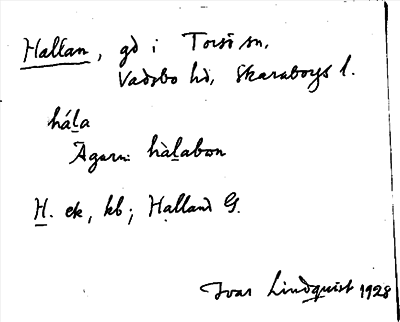 Hallan, gd i Torsö sn,
Vadsbo hd, Skaraborgs l.
hála
Ägarn: hàlabon
H. ek, kb; Halland G.
Ivar Lindquist 1928